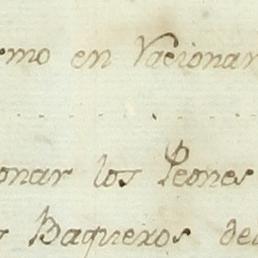 rmo en Racionar
onar los Peones
s Baqueros del